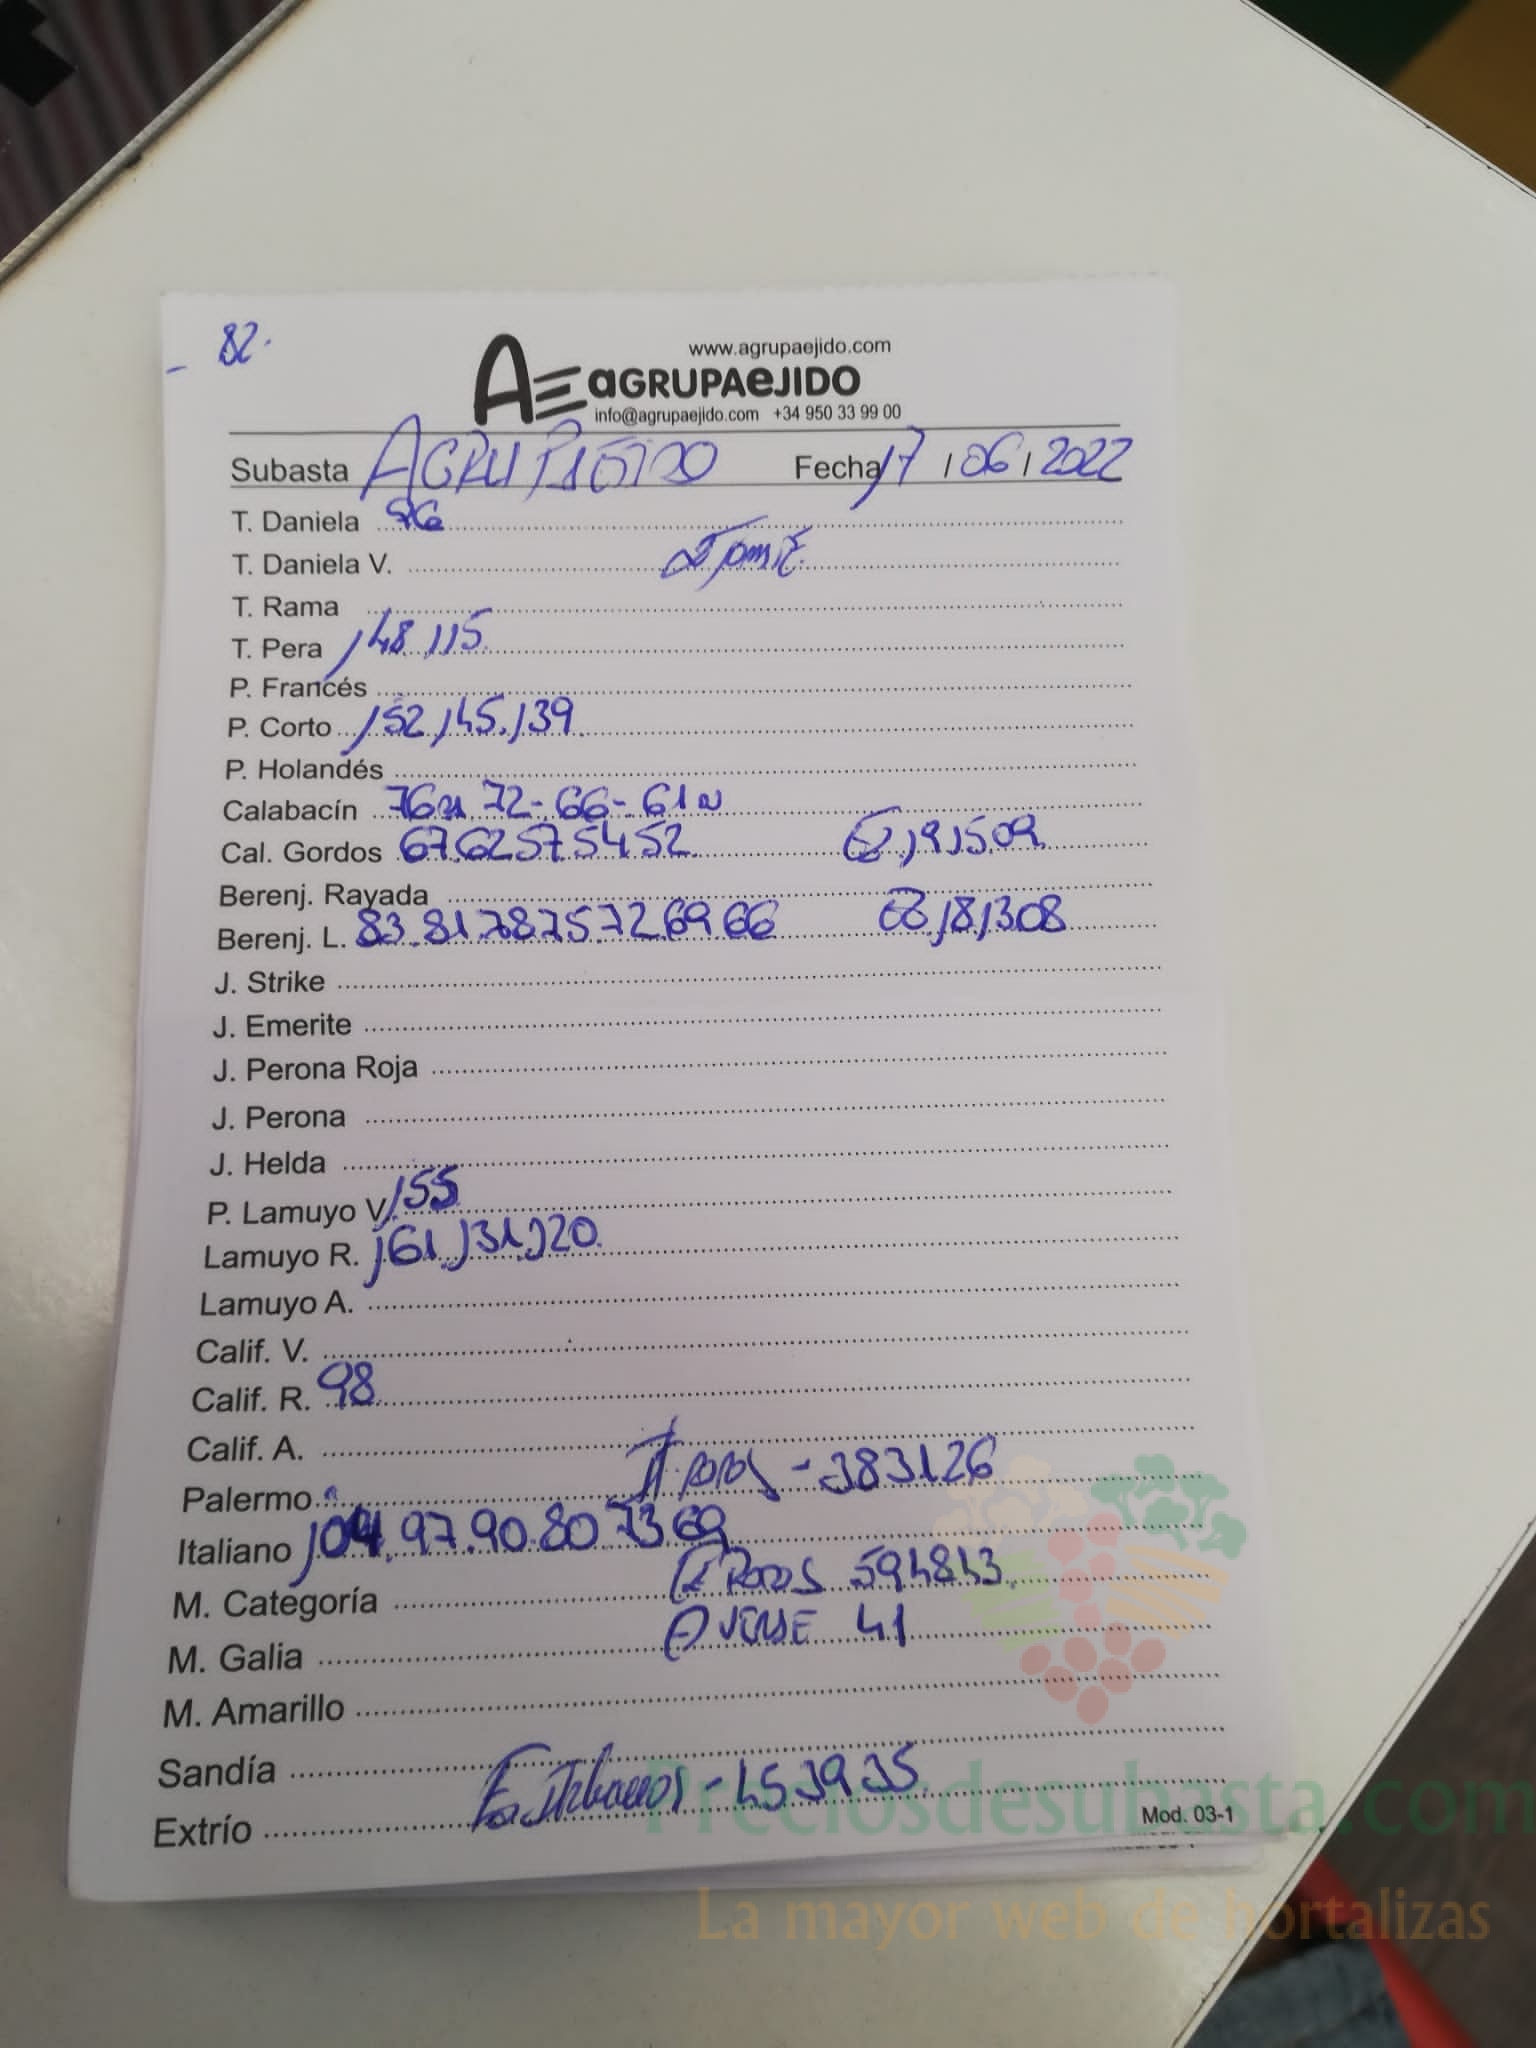 82.
www.agrupaejido.com
AE aGRUPAeJIDO
info@agrupaejido.com +34 950 33 99 00
Subasta AGRUPAEJIDO Fecha 17 / 06 / 2022
T. Daniela
T. Daniela V.
T. Rama
T. Pera 148 115
P. Francés
P. Corto 152 145. 139
P. Holandés
Calabacín 76 72- 66- 61
Cal. Gordos 67.62 57.54 52 19 15.09
Berenj. Rayada
Berenj. L. 83.81.78.75.72.69 66 18 13.08
J. Strike
J. Emerite
J. Perona Roja
J. Perona
J. Helda
P. Lamuyo V. 155
Lamuyo R. 161. 131. 120.
Lamuyo A.
Calif. V.
Calif. R. 98
Calif. A.
Palermo - 383126
Italiano 104. 97. 90. 80 73 69
M. Categoría 594843
M. Galia 41
M. Amarillo
Sandía
Extrío - 453935
Mod. 03-1
Preciosdesubasta.com
La mayor web de hortalizas